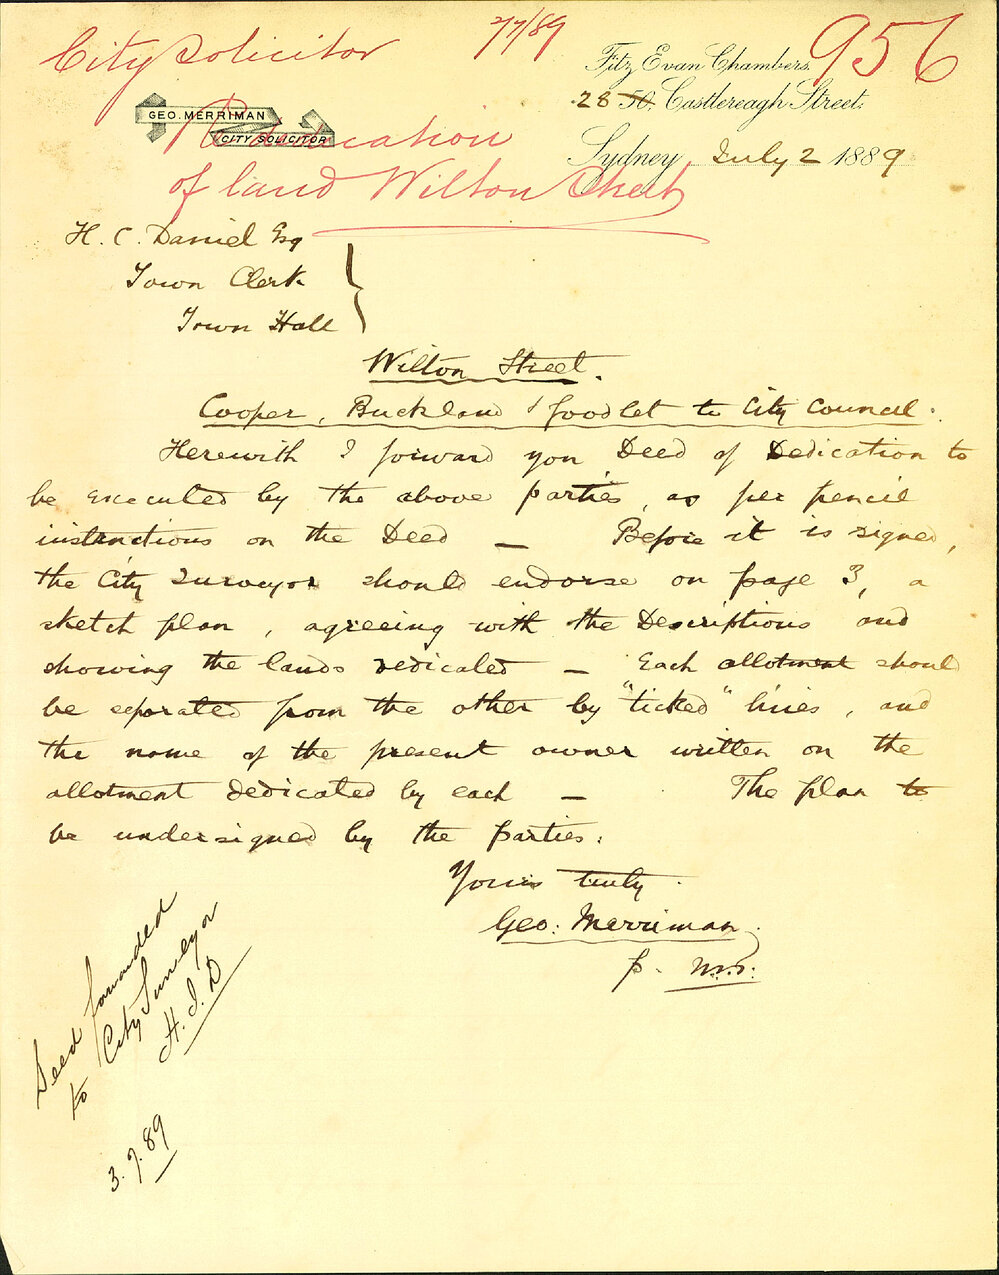 City Solicitor
7/7/89
956
Fitz Evan Chambers,
28 50, Castlereagh Street,
GEO. MERRIMAN
CITY SOLICITOR
Dedication
Sydney, July 2 1889
of land Wilton Street
H. C. Daniel Esq
Town Clerk
Town Hall
Wilton Street.
Cooper, Buckland & Goodlet to City Council.
Herewith I forward you Deed of Dedication to
be executed by the above parties, as per pencil
instructions on the Deed — Before it is signed,
the City Surveyor should endorse on page 3, a
sketch plan, agreeing with the Descriptions and
showing the lands dedicated — Each allotment should
be separated from the other by "ticked" lines, and
the name of the present owner written on the
allotment dedicated by each — The plan to
be undersigned by the parties.
Yours truly.
Geo: Merriman.
p.
Deed forwarded
to City Surveyor
H. J. D
3.7.89